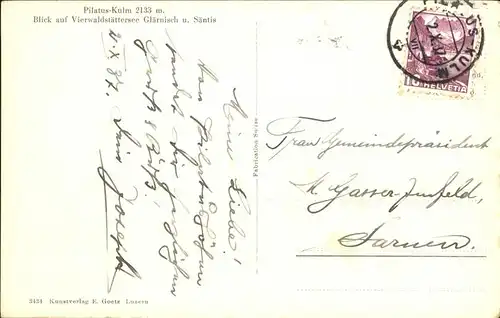 Pilatus-Kulm 2133 m.
Blick auf Vierwaldstättersee Glärnisch u. Säntis
Meine Liebe!
Von Pilatushöhen
sendet Dir herzlichen
Gruss & Kuss!
Dein Joseph
2. X. 37.
Fabrication Suisse
KULM
HELVETIA
10
Frau Gemeindepräsident
M. Gasser-Imfeld,
Sarnen.
3424 Kunstverlag E. Goetz Luzern